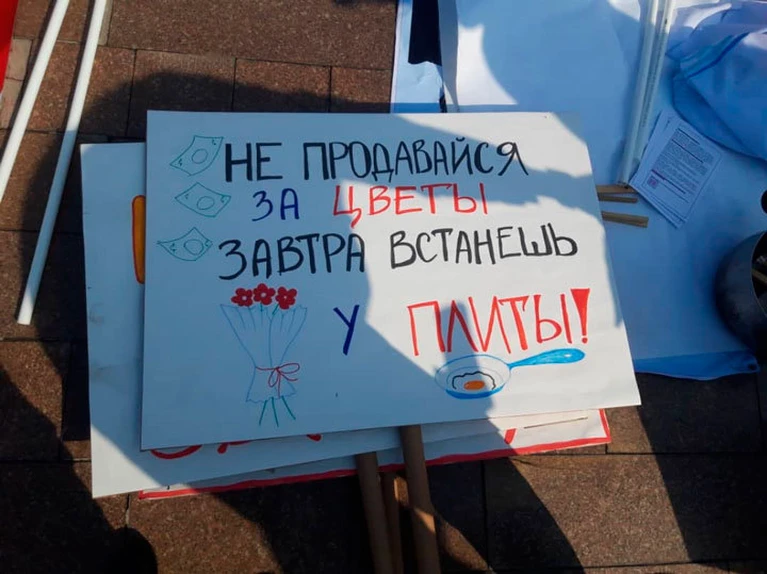 НЕ ПРОДАВАЙСЯ
ЗА ЦВЕТЫ
ЗАВТРА ВСТАНЕШЬ
У ПЛИТЫ!